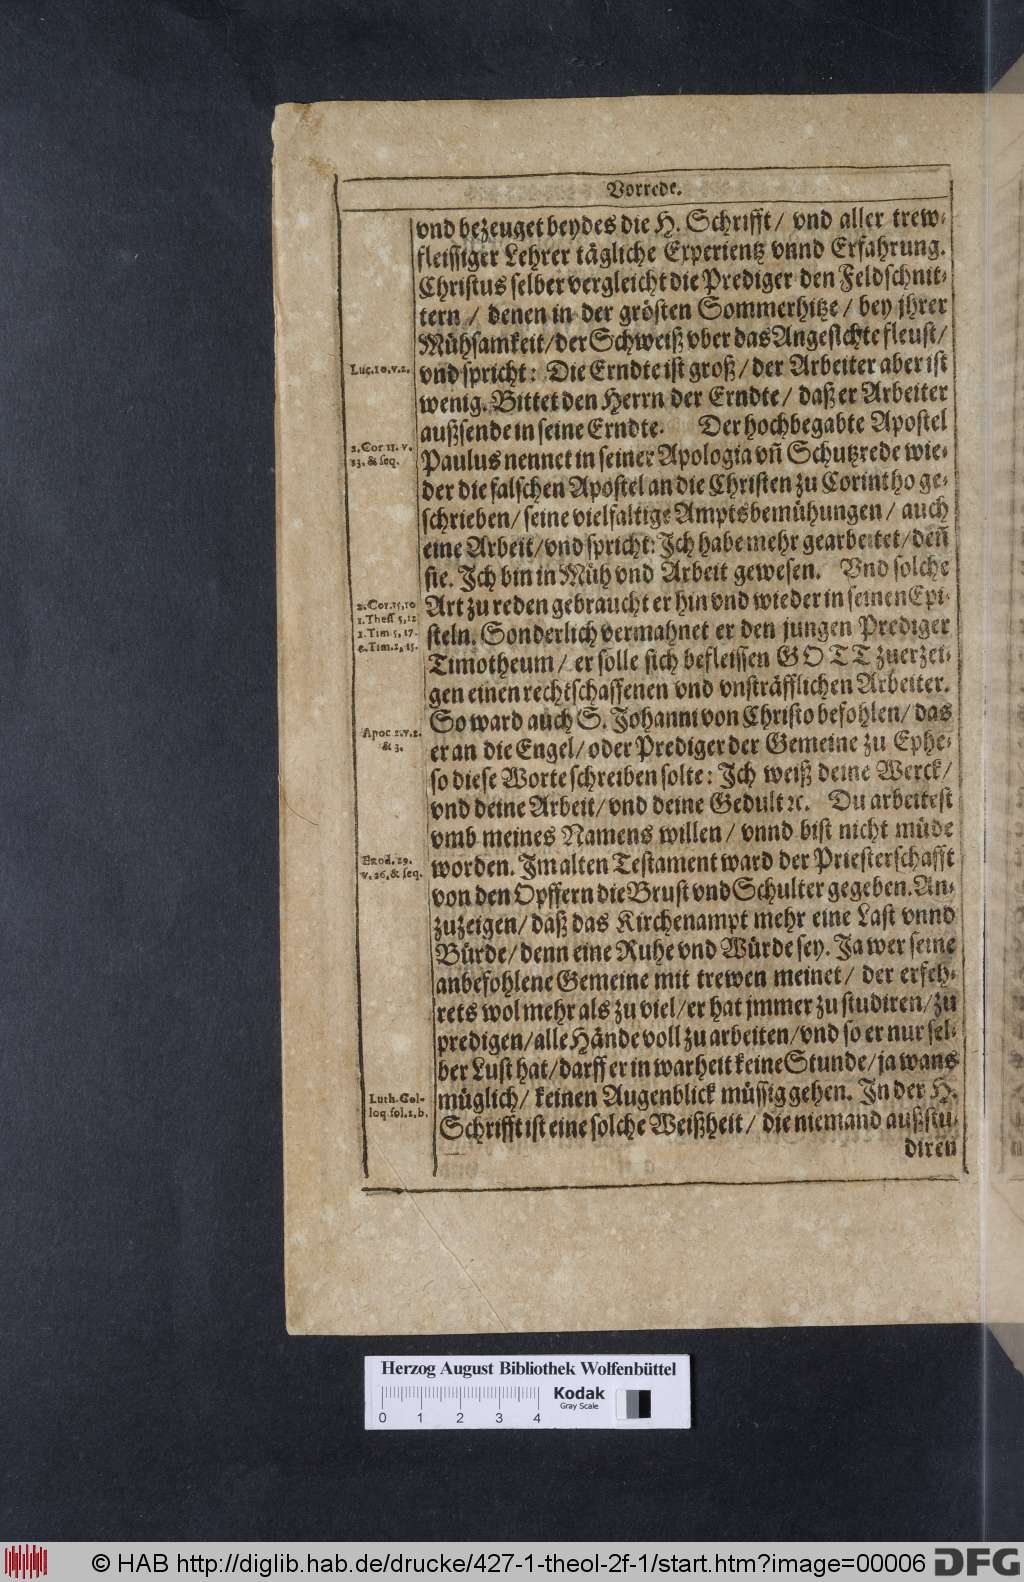 Vorrede.
vnd bezeuget beydes die H. Schrifft/ vnd aller trew-
fleissiger Lehrer tägliche Experientz vnnd Erfahrung.
Christus selber vergleicht die Prediger den Feldschnit-
tern/ denen in der grösten Sommerhitze/ bey jhrer
Mühsamkeit/ der Schweiß vber das Angesichte fleust/
Luc. 10. v. 2.
vnd spricht: Die Erndte ist groß/ der Arbeiter aber ist
wenig. Bittet den Herrn der Erndte/ daß er Arbeiter
außsende in seine Erndte. Der hochbegabte Apostel
2. Cor 11. v.
23. & seq.
Paulus nennet in seiner Apologia vñ Schutzrede wie-
der die falschen Apostel an die Christen zu Corintho ge-
schrieben/ seine vielfaltige Amptsbemühungen/ auch
eine Arbeit/ vnd spricht: Ich habe mehr gearbeitet/ deñ
sie. Ich bin in Müh vnd Arbeit gewesen. Vnd solche
2. Cor. 15, 10
1. Thess 5, 12
1. Tim 5, 17.
2. Tim. 2, 15.
Art zu reden gebraucht er hin vnd wieder in seinen Epi-
steln. Sonderlich vermahnet er den jungen Prediger
Timotheum/ er solle sich befleissen GOTT zuerzei-
gen einen rechtschaffenen vnd vnsträfflichen Arbeiter.
So ward auch S. Johanni von Christo befohlen/ das
Apoc 2. v. 2.
& 3.
er an die Engel/ oder Prediger der Gemeine zu Ephe-
so diese Worte schreiben solte: Ich weiß deine Werck/
vnd deine Arbeit/ vnd deine Gedult ꝛc. Du arbeitest
vmb meines Namens willen/ vnnd bist nicht müde
Exod. 29.
v. 26. & seq.
worden. Im alten Testament ward der Priesterschafft
von den Opffern die Brust vnd Schulter gegeben. An-
zuzeigen/ daß das Kirchenampt mehr eine Last vnnd
Bürde/ denn eine Ruhe vnd Würde sey. Ja wer seine
anbefohlene Gemeine mit trewen meinet/ der erfeh-
rets wol mehr als zu viel/ er hat jmmer zu studiren/ zu
predigen/ alle Hände voll zu arbeiten/ vnd so er nur sel-
ber Lust hat/ darff er in warheit keine Stunde/ ja wans
Luth. Col-
loq. fol. 2, b.
müglich/ keinen Augenblick müssig gehen. In der H.
Schrifft ist eine solche Weißheit/ die niemand außstu-
diren
Herzog August Bibliothek Wolfenbüttel
Kodak
Gray Scale
0 1 2 3 4
© HAB http://diglib.hab.de/drucke/427-1-theol-2f-1/start.htm?image=00006
DFG